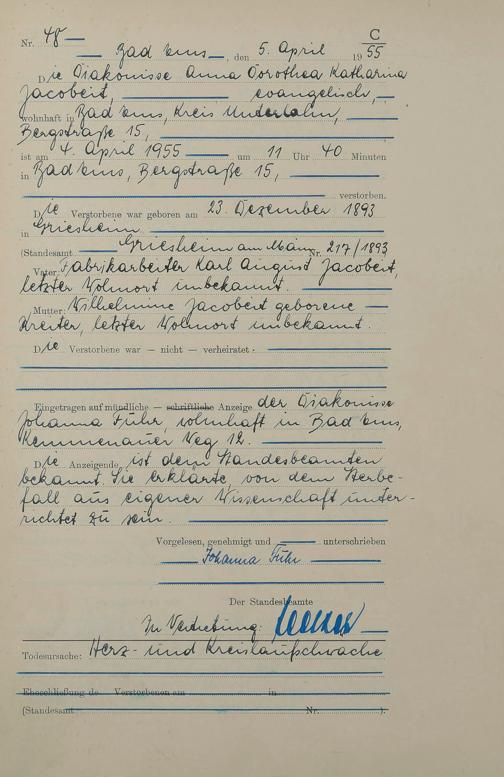 C
Nr. 48
Bad Ems, den 5. April 1955
Die Diakonisse Anna Dorothea Katharina
Jacobeit, evangelisch,
wohnhaft in Bad Ems, Kreis Unterlahn,
Bergstraße 15,
ist am 4. April 1955 um 11 Uhr 40 Minuten
in Bad Ems, Bergstraße 15,
verstorben.
Die Verstorbene war geboren am 23. Dezember 1893
in Griesheim
(Standesamt Griesheim am Main Nr. 217/1893
Vater: Fabrikarbeiter Karl August Jacobeit,
letzter Wohnort unbekannt.
Mutter: Wilhelmine Jacobeit geborene
Kreiter, letzter Wohnort unbekannt.
Die Verstorbene war — nicht — verheiratet
Eingetragen auf mündliche — schriftliche Anzeige der Diakonisse
Johanna Fuhr, wohnhaft in Bad Ems,
Kemmenauer Weg 12.
Die Anzeigende ist dem Standesbeamten
bekannt. Sie erklärte, von dem Sterbe-
fall aus eigener Wissenschaft unter-
richtet zu sein.
Vorgelesen, genehmigt und unterschrieben
Johanna Fuhr
Der Standesbeamte
In Vertretung:
Todesursache: Herz- und Kreislaufschwäche
Eheschließung de Verstorbenen am in
(Standesamt Nr. ).